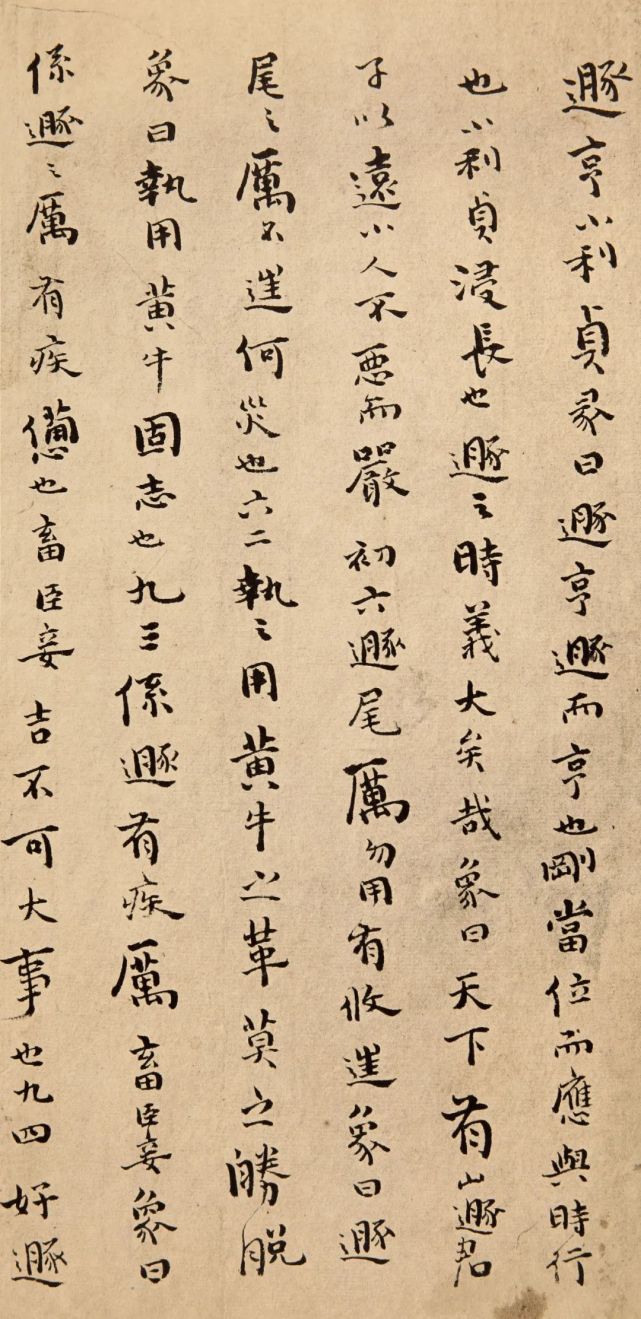 遯亨小利貞彖曰遯亨遯而亨也剛當位而應與時行
也小利貞浸長也遯之時義大矣哉象曰天下有山遯君
子以遠小人不悪而嚴初六遯尾厲勿用有攸進象曰遯
尾之厲不進何災也六二執之用黃牛之革莫之勝脫
象曰執用黃牛固志也九三係遯有疾厲畜臣妾象曰
係遯之厲有疾憊也畜臣妾吉不可大事也九四好遯